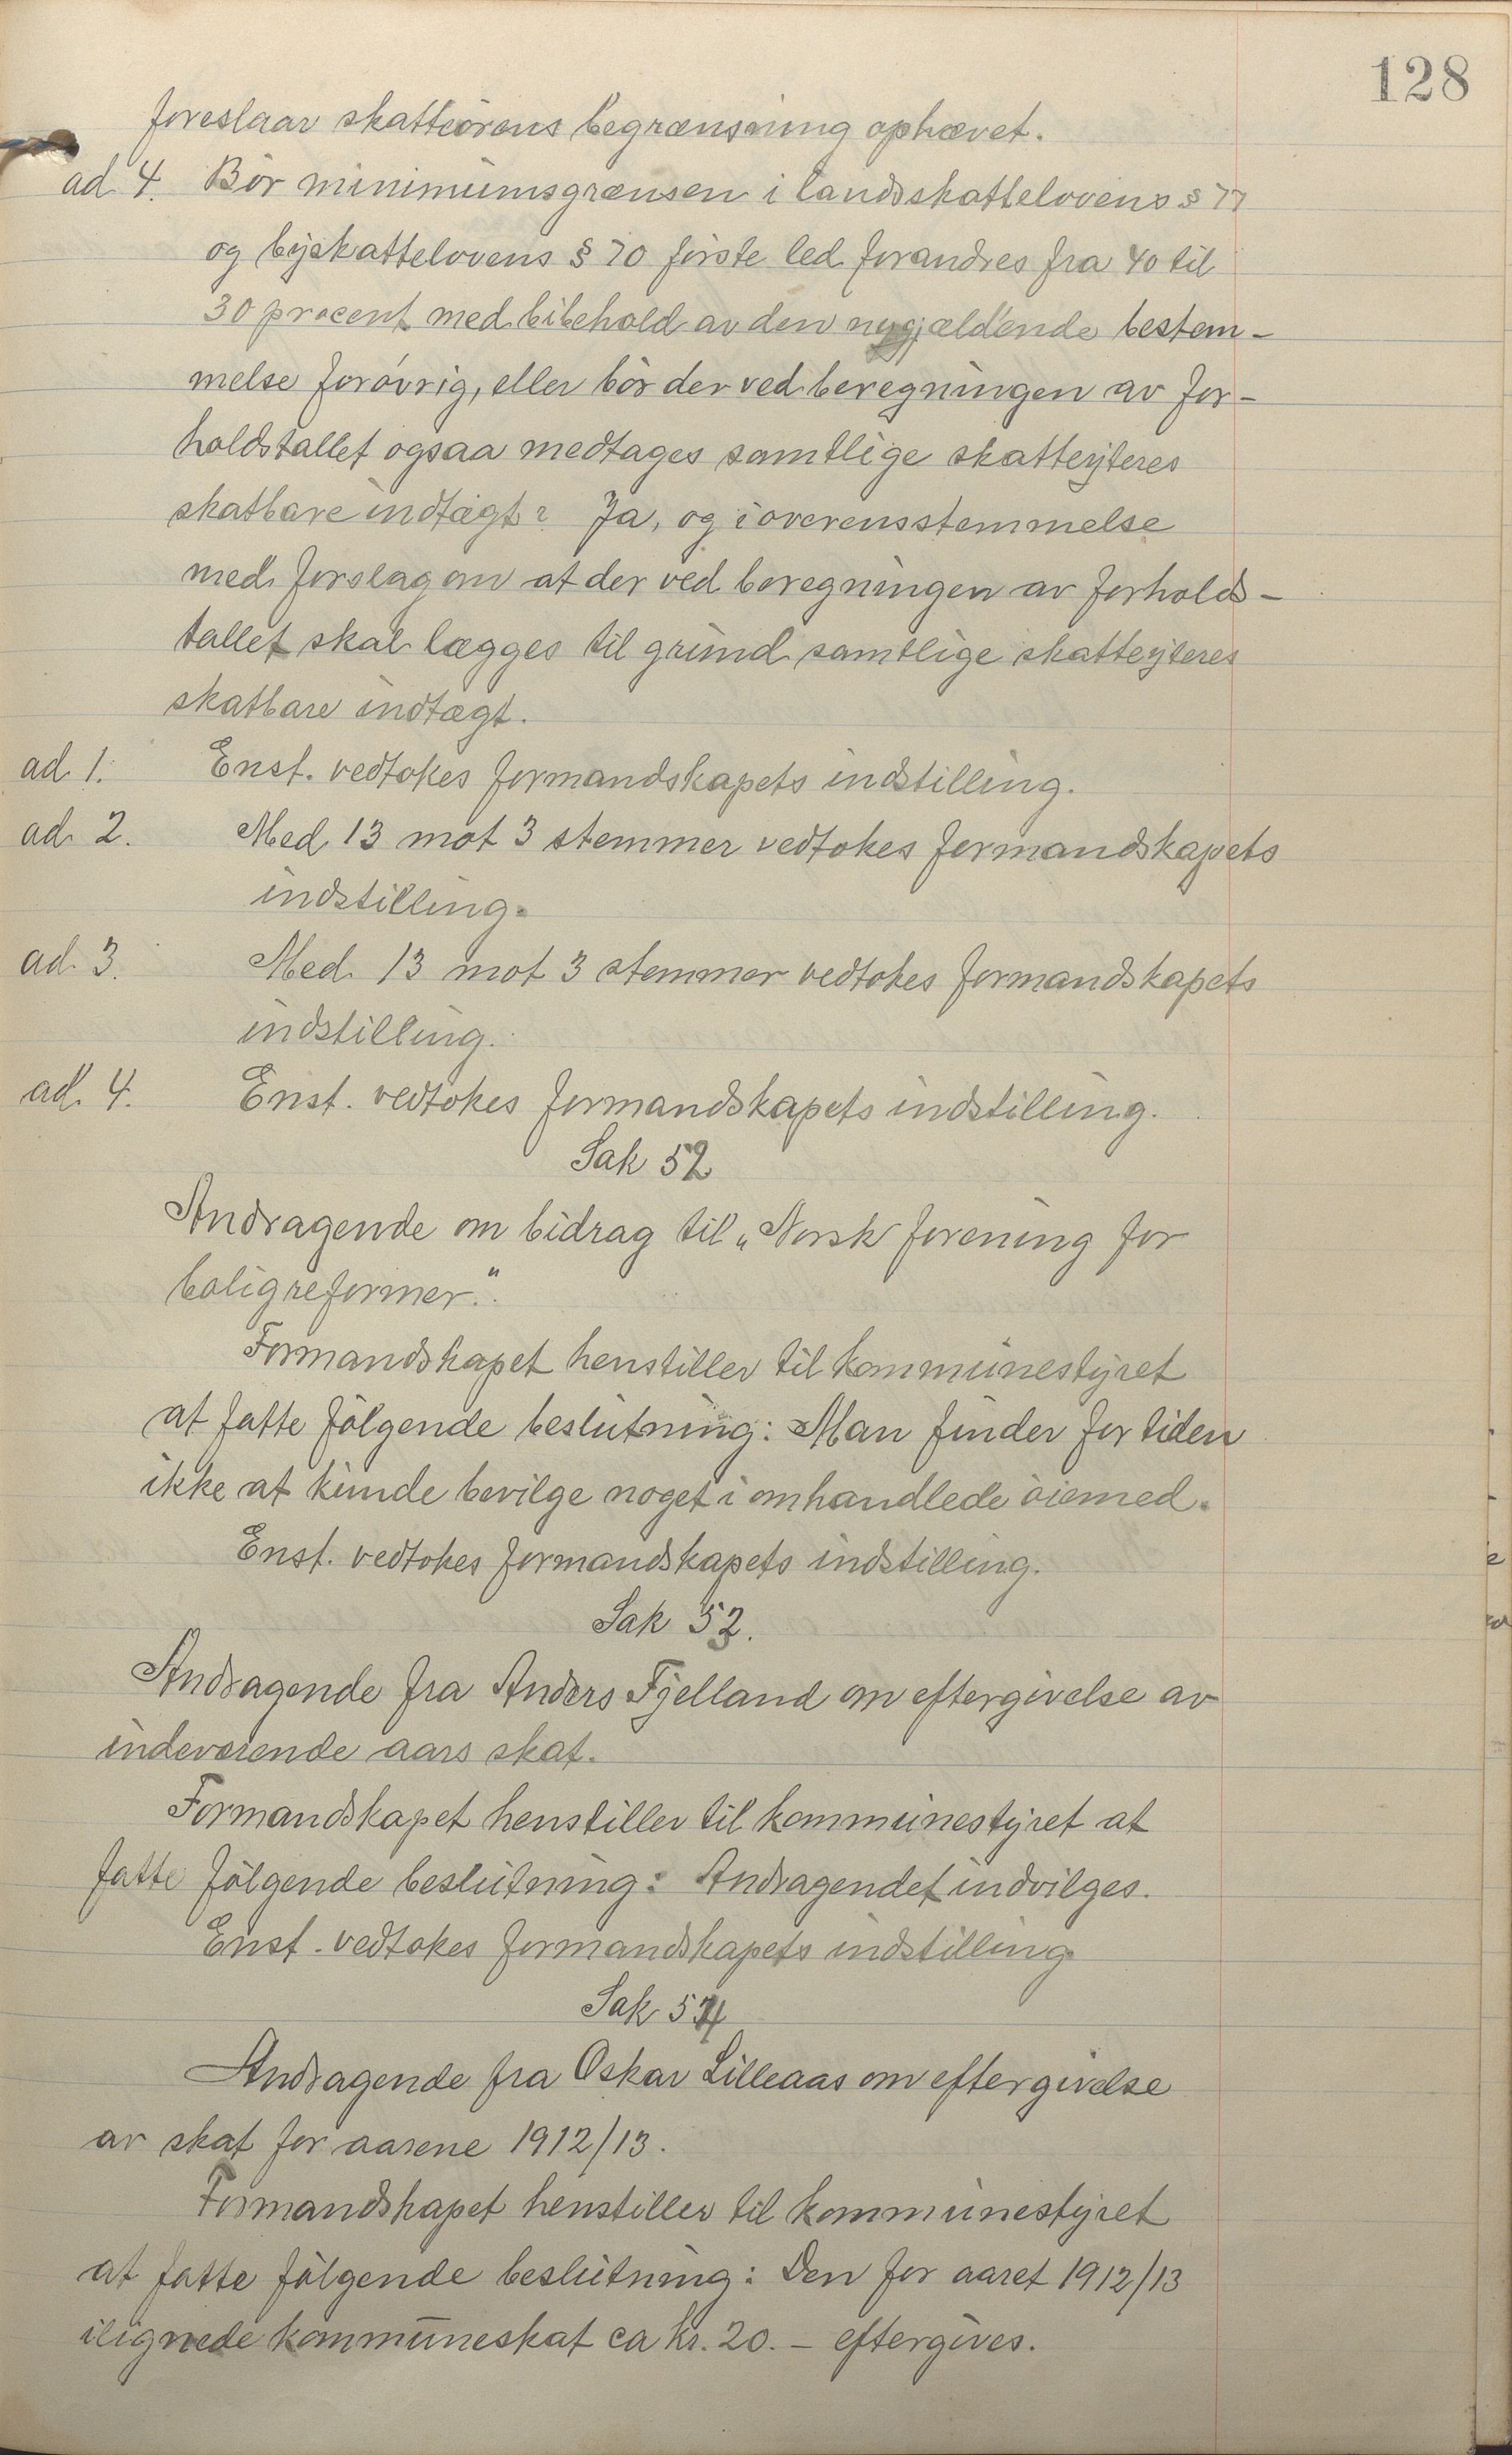 128
foreslaar skatteörens begrænsning ophævet.
ad 4. Bör minimumsgrænsen i landsskattelovens § 77
og byskattelovens § 70 förste led forandres fra 40 til
30 procent med bibehold av den nugjældende bestem-
melse forövrig, eller bör der ved beregningen av for-
holdstallet ogsaa medtages samtlige skatteyteres
skatbare indtægt? Ja, og i overensstemmelse
med forslag om at der ved beregningen av forholds-
tallet skal lægges til grund samtlige skatteyteres
skatbare indtægt.
ad 1. Enst. vedtokes formandskapets indstilling.
ad 2. Med 13 mot 3 stemmer vedtokes formandskapets
indstilling.
ad 3. Med 13 mot 3 stemmer vedtokes formandskapets
indstilling.
ad 4. Enst. vedtokes formandskapets indstilling.
Sak 52
Andragende om bidrag til „Norsk forening for
boligreformer."
Formandskapet henstiller til kommunestyret
at fatte fölgende beslutning: Man finder for tiden
ikke at kunde bevilge noget i omhandlede öiemed.
Enst. vedtokes formandskapets indstilling.
Sak 53.
Andragende fra Anders Fjelland om eftergivelse av
indeværende aars skat.
Formandskapet henstiller til kommunestyret at
fatte fölgende beslutning: Andragendet indvilges.
Enst. vedtokes formandskapets indstilling
Sak 54
Andragende fra Oskar Lilleaas om eftergivelse
av skat for aarene 1912/13.
Formandskapet henstiller til kommunestyret
at fatte fölgende beslutning: Den for aaret 1912/13
ilignede kommuneskat ca kr. 20. - eftergives.